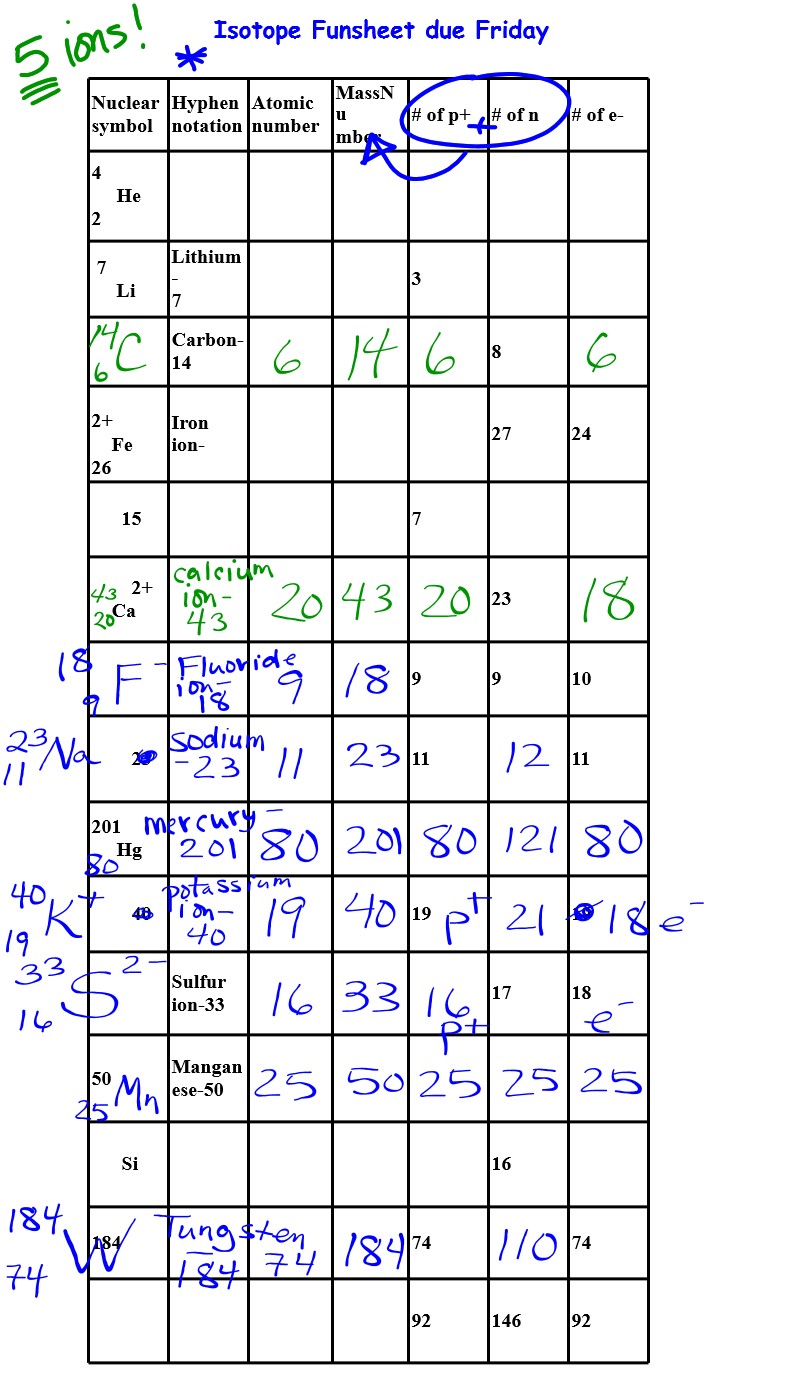 5 ions!
Isotope Funsheet due Friday
*
Nuclear symbol Hyphen notation Atomic number MassNumber # of p+ + # of n # of e-
4
He
2
7
Li
Lithium
-
7
3
14
6 C
Carbon-
14
6 14 6 8 6
2+
Fe
26
Iron
ion-
27 24
15
7
43 2+
20 Ca
calcium
ion-
43
20 43 20 23 18
18
9 F-
Fluoride
ion-
18
9 18 9 9 10
23
11 Na
sodium
-23
11 23 11 12 11
201
80 Hg
mercury-
201
80 201 80 121 80
40
19 K+
40
potassium
ion-
40
19 40 19 p+ 21 18 e-
33
16 S 2-
Sulfur
ion-33
16 33 16 p+ 17 18 e-
50
25 Mn
Mangan
ese-50
25 50 25 25 25
Si
16
184
74 W
184
Tungsten
-
184
74 184 74 110 74
92 146 92